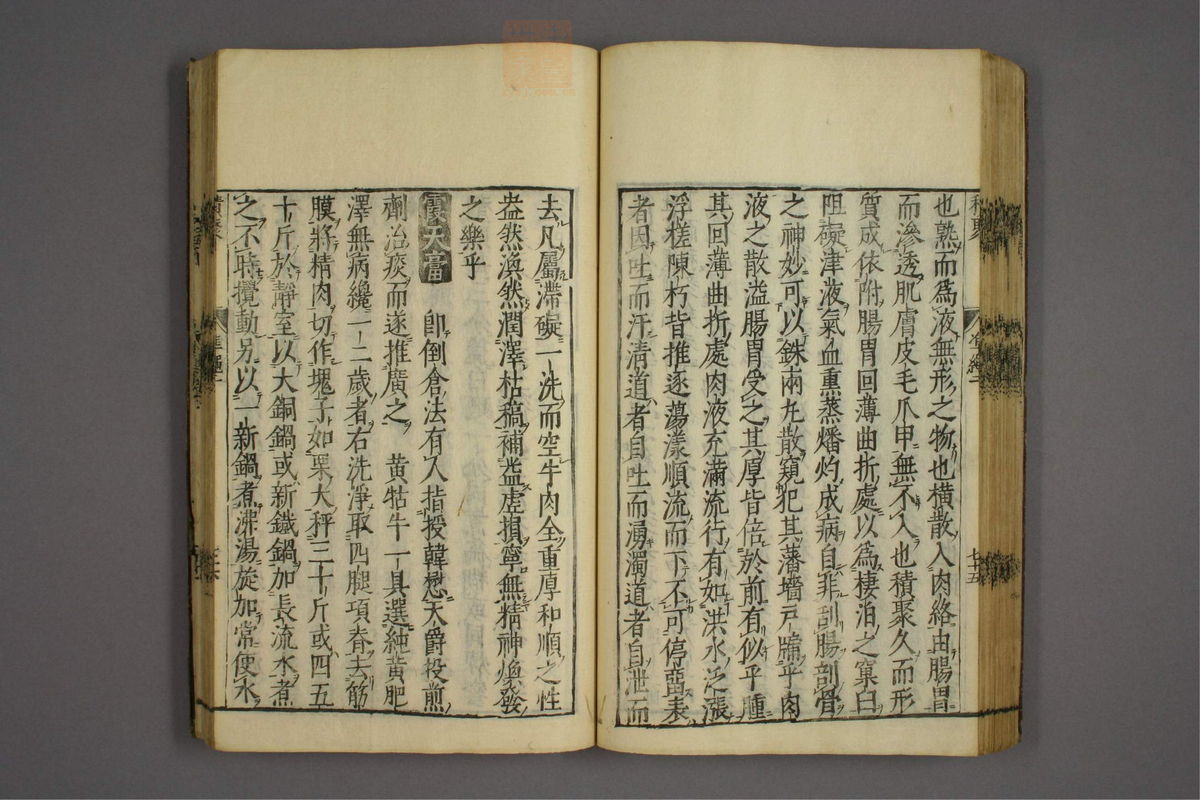 也熟而爲液無形之物也橫散入肉絡由腸胃
而滲透肌膚皮毛爪甲無不入也積聚久而形
質成依附腸胃回薄曲折處以爲棲泊之窠臼
阻礙津液氣血熏蒸燔灼成病自非刮腸剖骨
之神妙可以銖兩丸散窺犯其藩墻戶牖乎肉
液之散溢腸胃受之其厚皆倍於前有似乎腫
其回薄曲折處肉液充滿流行有如洪水泛漲
浮槎陳朽皆推逐蕩漾順流而下不可停畱表
者因吐而汗清道者自吐而湧濁道者自泄而
去凡屬滯礙一洗而空牛肉全重厚和順之性
盎然渙然潤澤枯槁補益虛損寧無精神煥發
之樂乎
霞天膏 即倒倉法有人指授韓懋天爵投煎
劑治痰而遂推廣之 黃牯牛一具選純黃肥
澤無病纔一二歲者右洗淨取四腿項脊去筋
膜將精肉切作塊子如栗大秤三十斤或四五
十斤於靜室以大銅鍋或新鐵鍋加長流水煮
之不時攪動另以一新鍋煮沸湯旋加常使水